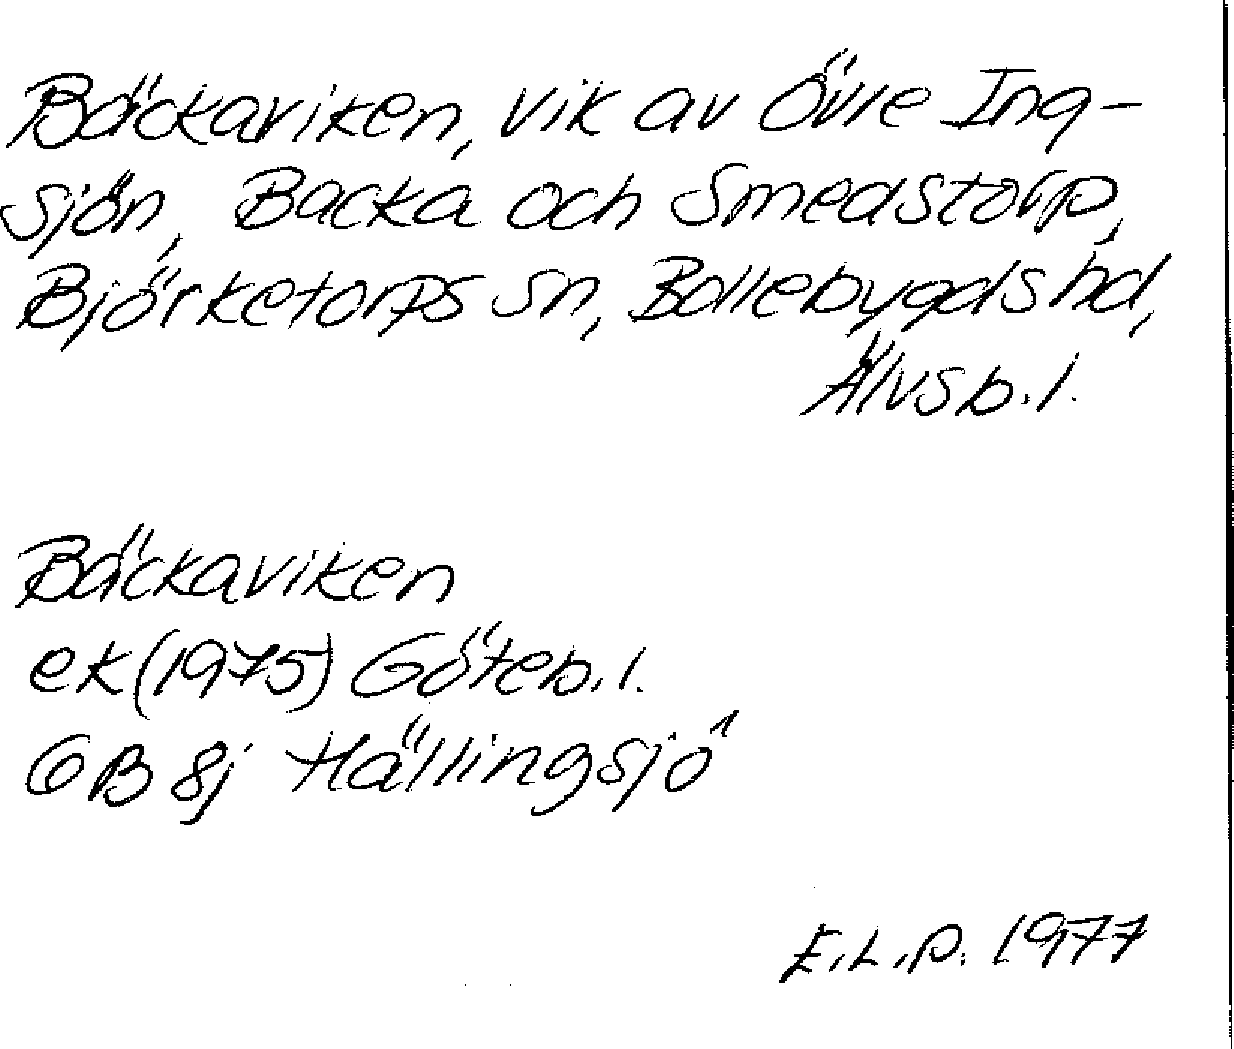 Bäckaviken, vik av Övre Ing-
sjön, Backa och Smedstorp,
Björketorps sn, Bollebygds hd,
Älvsb.l.
Bäckaviken
ek (1975) Göteb.l.
GB 8j Hällingsjö
E.L.P. 1977